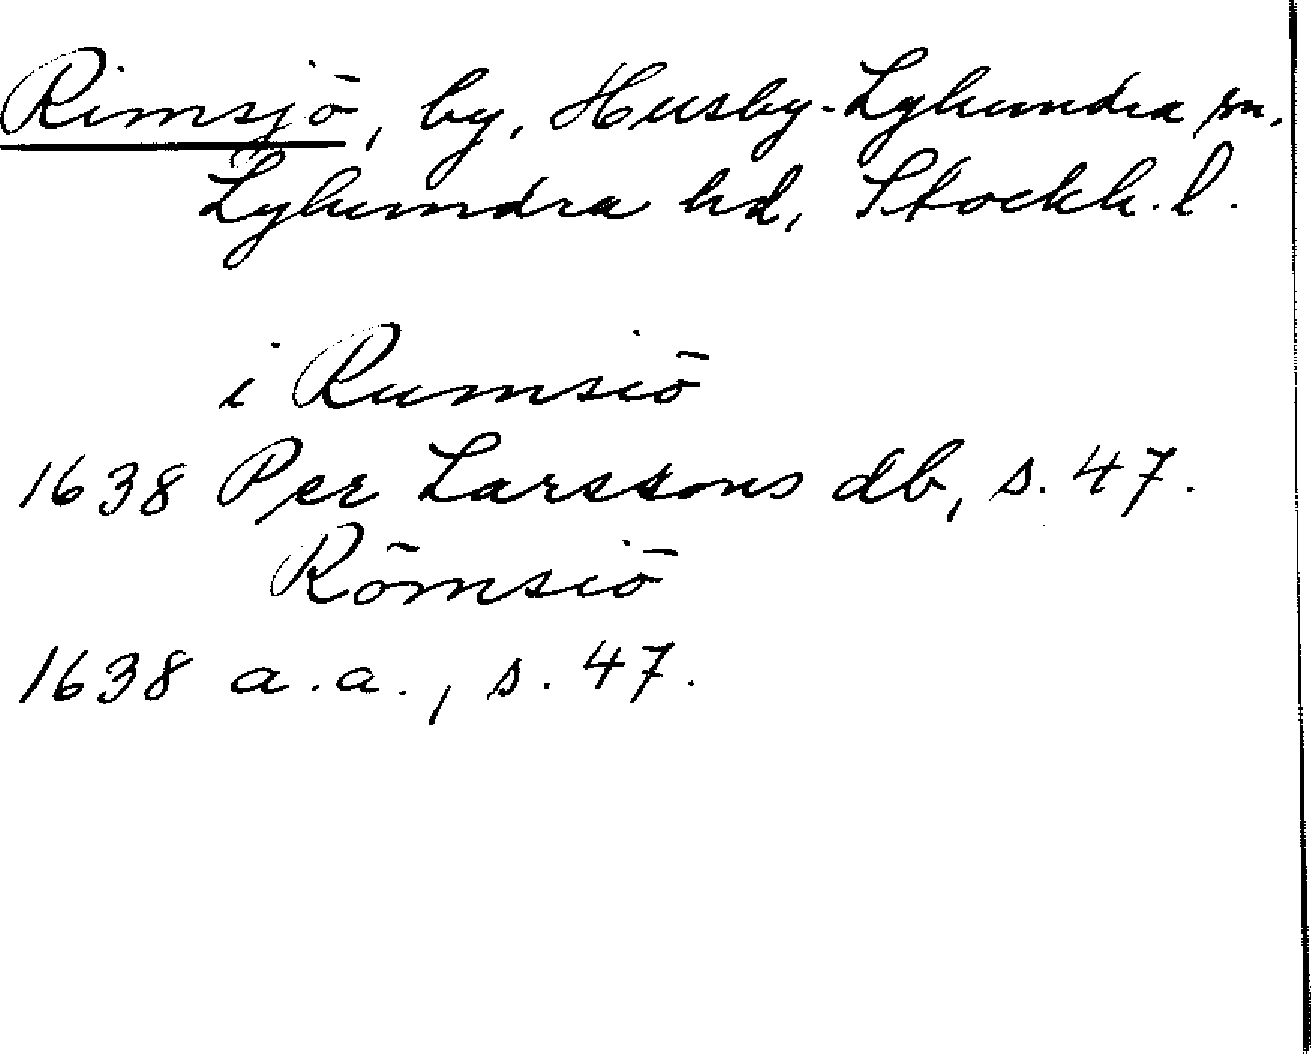 Rimsjö, by, Husby-Lyhundra sn,
Lyhundra hd, Stockh. l.
i Rumsiö
1638 Per Larssons db, s. 47.
Römsiö
1638 a.a., s. 47.